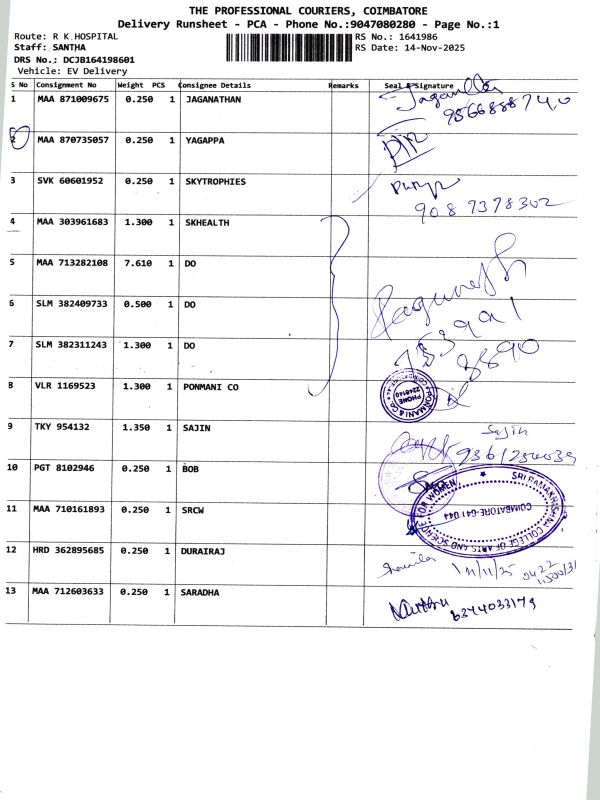 THE PROFESSIONAL COURIERS, COIMBATORE
Delivery Runsheet - PCA - Phone No.:9047080280 - Page No.:1
Route: R K HOSPITAL
RS No.: 1641986
Staff: SANTHA
RS Date: 14-Nov-2025
DRS No.; DCJB164198601
Vehicle: EV Delivery
S No Consignment No Weight PCS Consignee Details Remarks Seal & Signature
1 MAA 871009675 0.250 1 JAGANATHAN
2 MAA 870735057 0.250 1 YAGAPPA
3 SVK 60601952 0.250 1 SKYTROPHIES
9087378302
4 MAA 303961683 1.300 1 SKHEALTH
5 MAA 713282108 7.610 1 DO
6 SLM 382409733 0.500 1 DO
7 SLM 382311243 1.300 1 DO
8890
8 VLR 1169523 1.300 1 PONMANI CO
PONMANI & CO
PHONE
2248140
9 TKY 954132 1.350 1 SAJIN
Sajin
10 PGT 8102946 0.250 1 BOB
11 MAA 710161893 0.250 1 SRCW
SRI RAMAKRISHNA COLLEGE OF ARTS AND SCIENCE FOR WOMEN
COIMBATORE-641 044
12 HRD 362895685 0.250 1 DURAIRAJ
13 MAA 712603633 0.250 1 SARADHA
6374033179